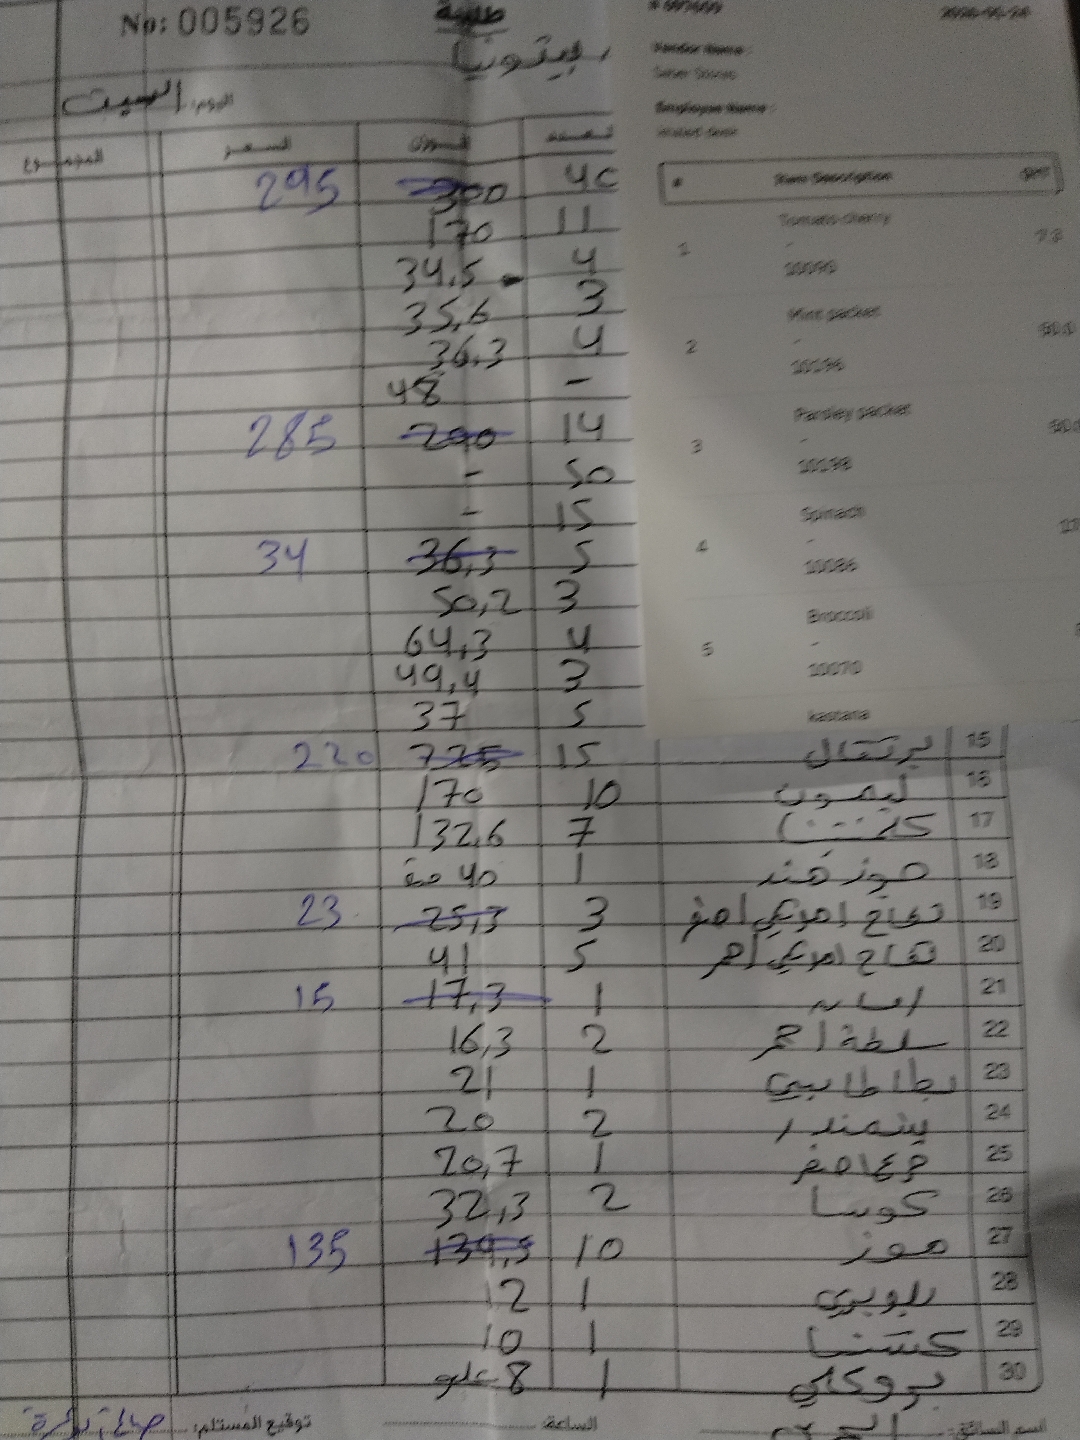 No: 005926
طلبية
بيتونيا
اليوم: السبت
العدد الوزن السعر المجموع
40 300 295
11 170
4 34.5
3 35,6
4 36,3
- 48
14 290 285
50 -
15 -
5 36,3 34
3 50,2
4 64,3
3 49,4
5 37
15 برتقال 15 225 220
16 ليمون 10 170
17 7 132,6
18 جوز هند 1 40 حبة
19 تفاح امريكي اصفر 3 25,3 23
20 تفاح امريكي احمر 5 41
21 1 17,3 15
22 سلطة احمر 2 16,3
23 بطاطا بيبي 1 21
24 شمندر 2 20
25 قرع اصفر 1 20,7
26 كوسا 2 32,3
27 موز 10 139,5 135
28 بلوبري 1 12
29 كستنا 1 10
30 بروكلي 1 8 علبو
اسم السائق: الساعة: توقيع المُستلم:
Vendor Name :
Employee Name :
# Item Description QTY
1 Tomato cherry
-
10096
2 Mint packet
-
10196
3 Parsley packet
-
10198
4 Spinach
-
10086
5 Broccoli
-
10070
kastana